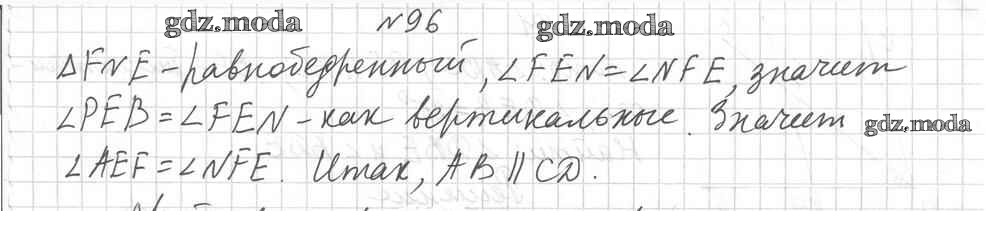 gdz.moda №96 gdz.moda
ΔFNE - равнобедренный, ∠FEN = ∠NFE, значит
∠PEB = ∠FEN - как вертикальные. Значит gdz.moda
∠AEF = ∠NFE. Итак, AB || CD.